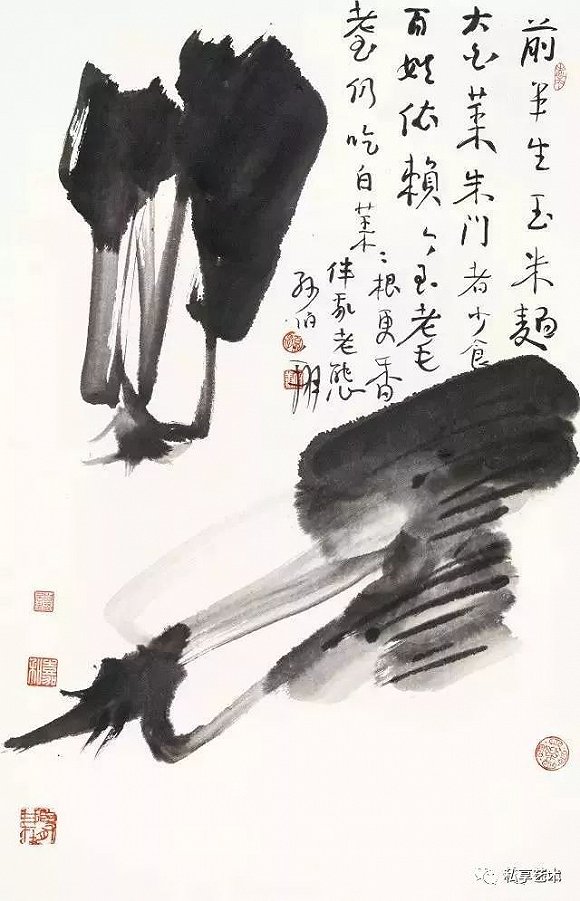 前半生玉米麵
大白菜朱门者少食
百姓依賴今至耄
耋仍吃白菜
々根更香
伴我老態
孙伯翔
私享艺术